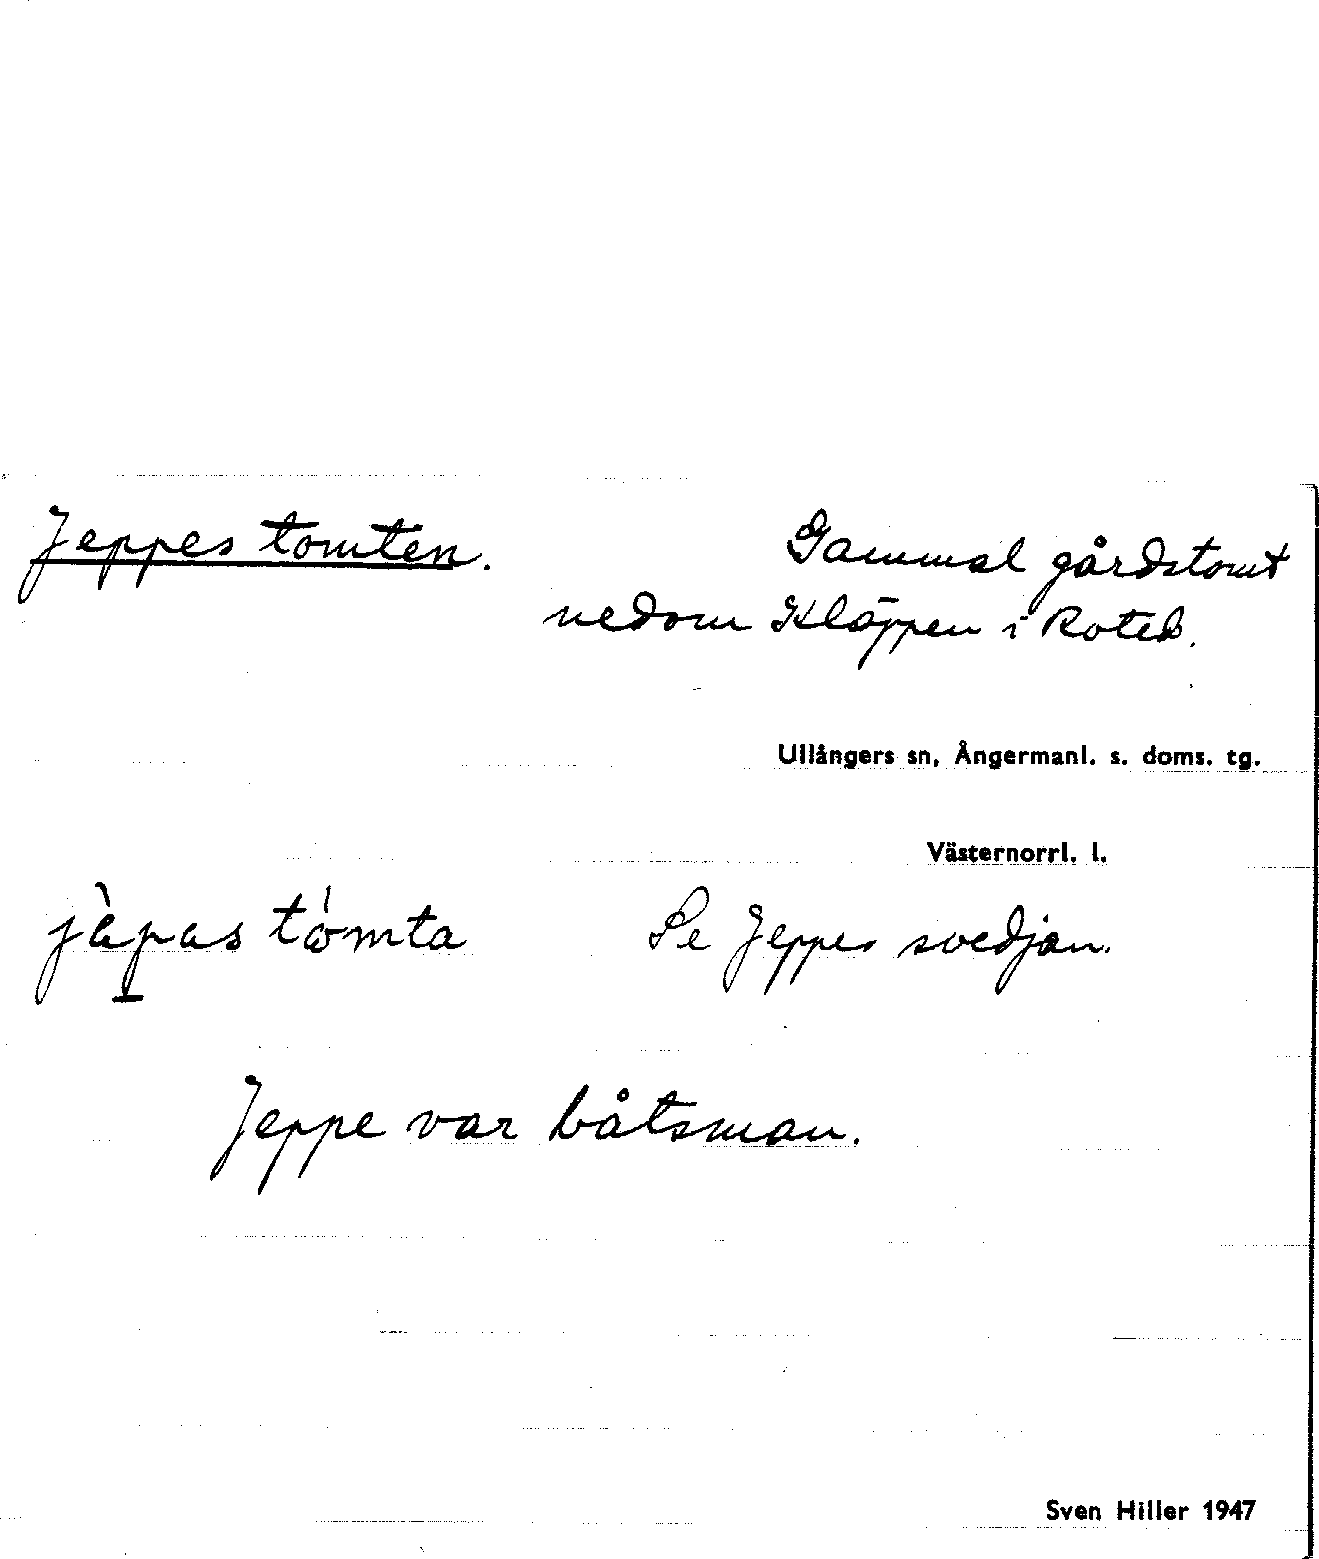 Jeppes tomten. Gammal gårdstomt
nedom Kläppen i Roteb.
Ullångers sn, Ångermanl. s. doms. tg.
Västernorrl. l.
jàpas tómta Se Jeppes svedjan.
Jeppe var båtsman.
Sven Hiller 1947